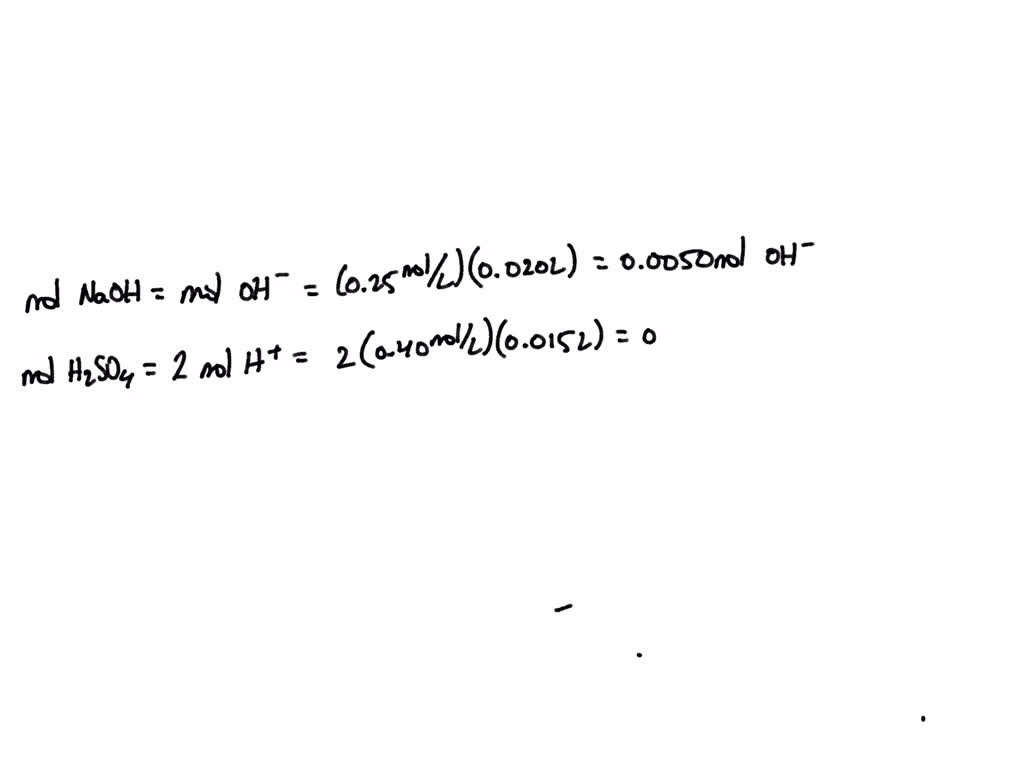 mol NaOH = mol OH⁻ = (0.25 mol/L)(0.020L) = 0.0050 mol OH⁻
mol H₂SO₄ = 2 mol H⁺ = 2(0.40 mol/L)(0.015L) = 0